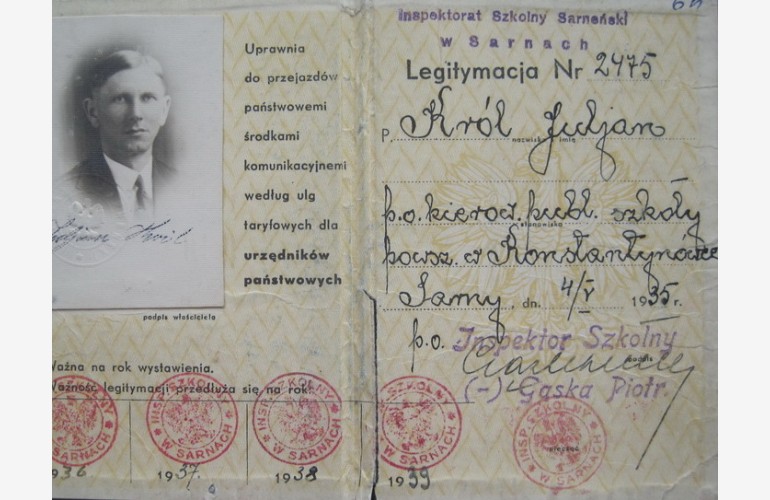 Uprawnia
do przejazdów
państwowemi
środkami
komunikacyjnemi
według ulg
taryfowych dla
urzędników
państwowych
podpis właściciela
Ważna na rok wystawienia.
Ważność legitymacji przedłuża się na rok:
INSP. SZKOLNY
W SARNACH
1936
INSP. SZKOLNY
W SARNACH
1937.
INSP. SZKOLNY
W SARNACH
1938
Inspektorat Szkolny Sarneński
w Sarnach
Legitymacja Nr 2475
P. Król Juljan
nazwisko i imię
p.o. kierow. publ. szkoły
stanowisko
powsz. w Konstantynówce
Sarny, dn. 4/V 1935 r.
p.o. Inspektor Szkolny
podpis
(-) Gąska Piotr.
INSP. SZKOLNY
W SARNACH
1939
INSP. SZKOLNY
W SARNACH